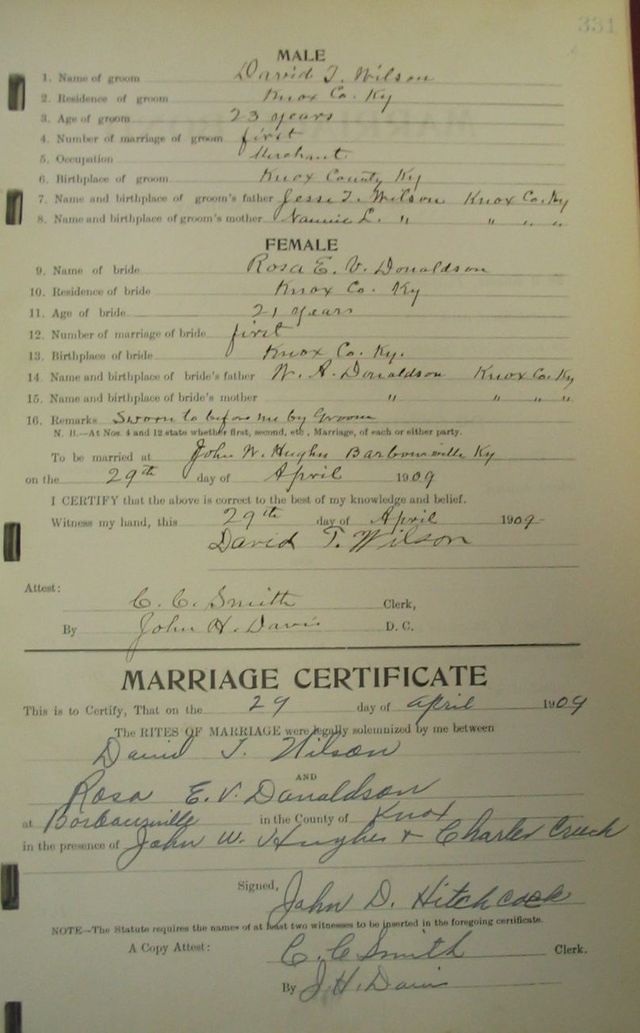 331
MALE
1. Name of groom David T. Wilson
2. Residence of groom Knox Co. Ky
3. Age of groom 23 years
4. Number of marriage of groom first
5. Occupation Merchant
6. Birthplace of groom Knox County Ky
7. Name and birthplace of groom's father Jesse T. Wilson Knox Co. Ky
8. Name and birthplace of groom's mother Nannie L. " " " "
FEMALE
9. Name of bride Rosa E. V. Donaldson
10. Residence of bride Knox Co. Ky
11. Age of bride 21 years
12. Number of marriage of bride first
13. Birthplace of bride Knox Co. Ky.
14. Name and birthplace of bride's father W. A. Donaldson Knox Co. Ky
15. Name and birthplace of bride's mother " " " "
16. Remarks Sworn to before me by Groom
N. B.—At Nos. 4 and 12 state whether first, second, etc, Marriage, of each or either party.
To be married at John W. Hughs Barbourville Ky
on the 29th day of April 1909
I CERTIFY that the above is correct to the best of my knowledge and belief.
Witness my hand, this 29th day of April 1909
David T. Wilson
Attest:
C. C. Smith Clerk,
By John H. Davis D. C.
MARRIAGE CERTIFICATE
This is to Certify, That on the 29 day of April 1909
The RITES OF MARRIAGE were legally solemnized by me between
David T. Wilson
AND
Rosa E. V. Donaldson
at Borbourville in the County of Knox
in the presence of John W. Hughes & Charles Creech
Signed, John D. Hitchcock
NOTE—The Statute requires the names of at least two witnesses to be inserted in the foregoing certificate.
A Copy Attest: C. C Smith Clerk.
By J. H. Davis